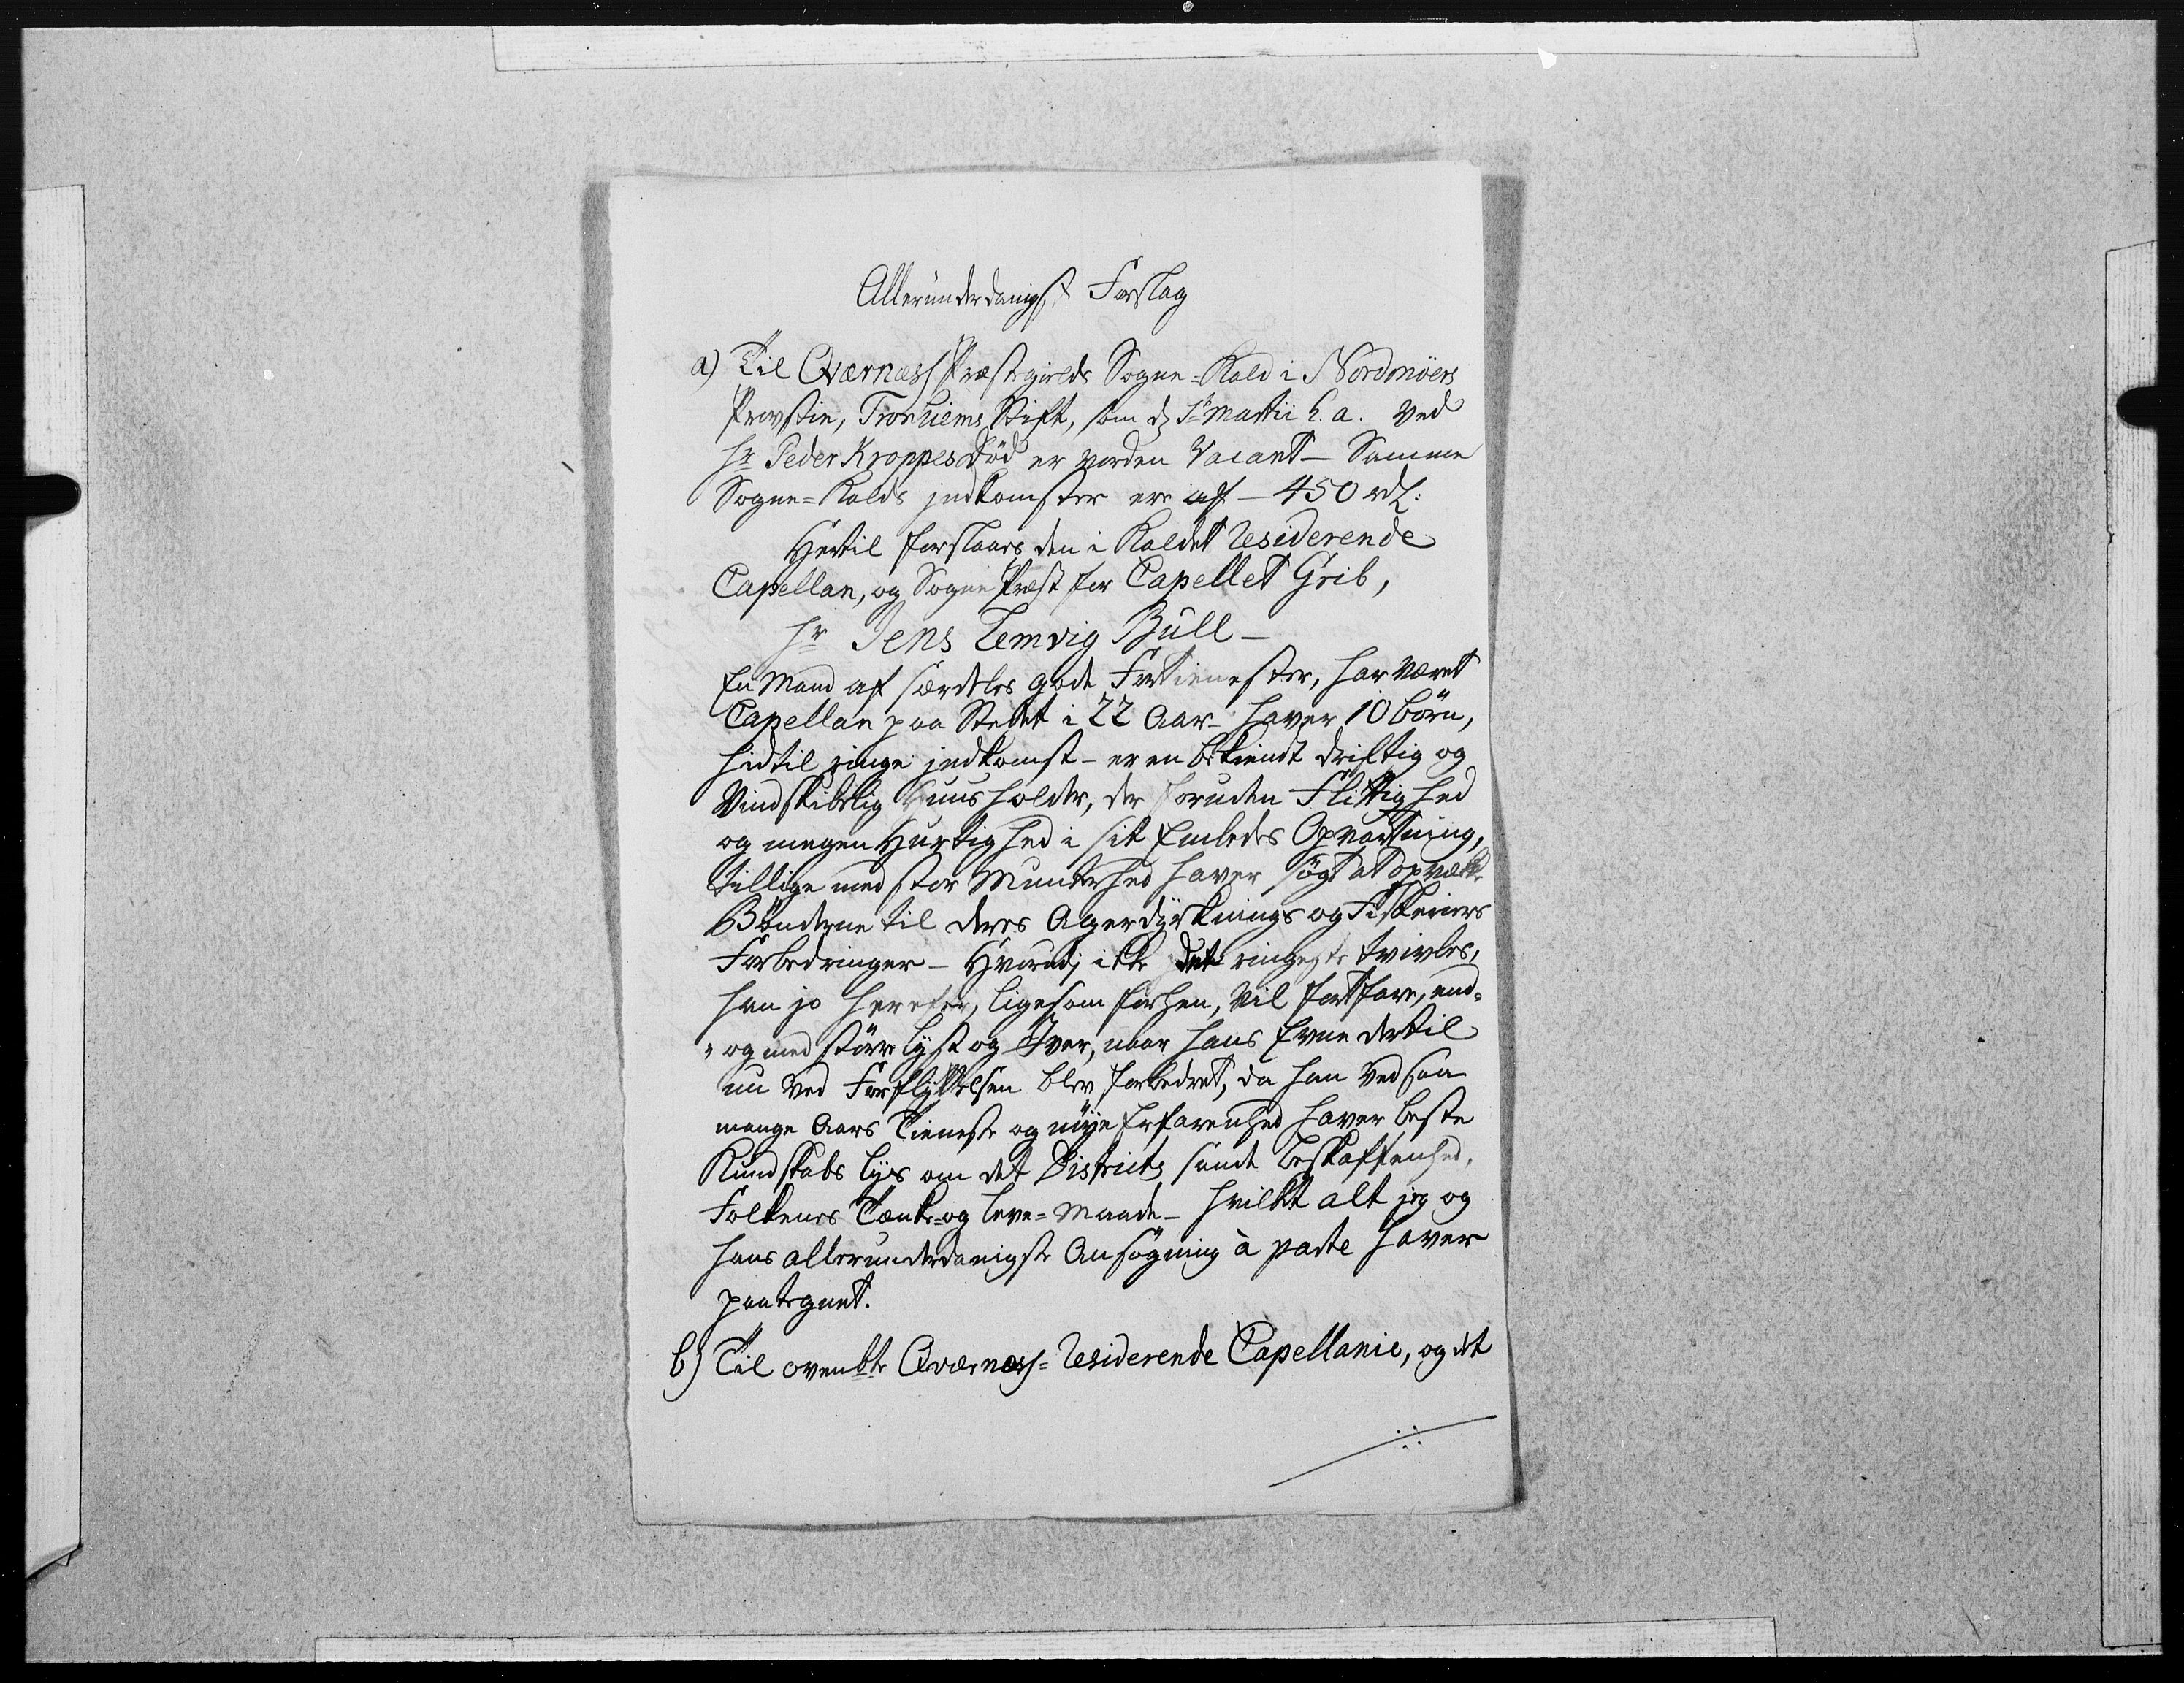 Allerunderdanigst Forslag
a) Til Qværnæss Præstegields Sogne-Kald i Nordmöers
Provstie, Tronhiems Stift, som d. Martii h.a. ved
Hr Peder Kroppes Död er vorden Vacant - Samme
Sogne-Kalds indkomster ere af - 450 rdl:
Hertil forslaaes den i Kaldet residerende
Capellan, og Sogne Præst for Capellet Grib,
Hr Jens Lemvig Bull -
En Mand af særdeles gode Fortienester, har været
Capellan paa Stedet i 22 Aar - haver 10 börn,
hidtil ringe indkomst - er en bekiendt driftig og
Vindskibelig Huusholder, der foruden Flittighed
og megen Hurtighed i sit Embedes Opvartning,
tillige med stor Munterhed haver sögt at opvække
Bönderne til deres Agerdyrknings og Fiskeriers
Forbedringer - Hvorudj ikke det ringeste tvivles,
han jo herefter, ligesom forhen, vil fortfare, end-
-og med större lyst og Iver, naar hans Evne dertil
nu ved Forflyttelsen blev forbedret, da han ved saa
mange Aars Tieneste og nöye Erfarenhed haver beste
Kundskabs lys om det Districts sande beskaffenhed,
Folkenes Tænke- og leve-Maade - hvilket alt jeg og
hans allerunderdanigste Ansögning à parte haver
paategnet.
b) Til ovenbte Qværnæss-residerende Capellanie, og det